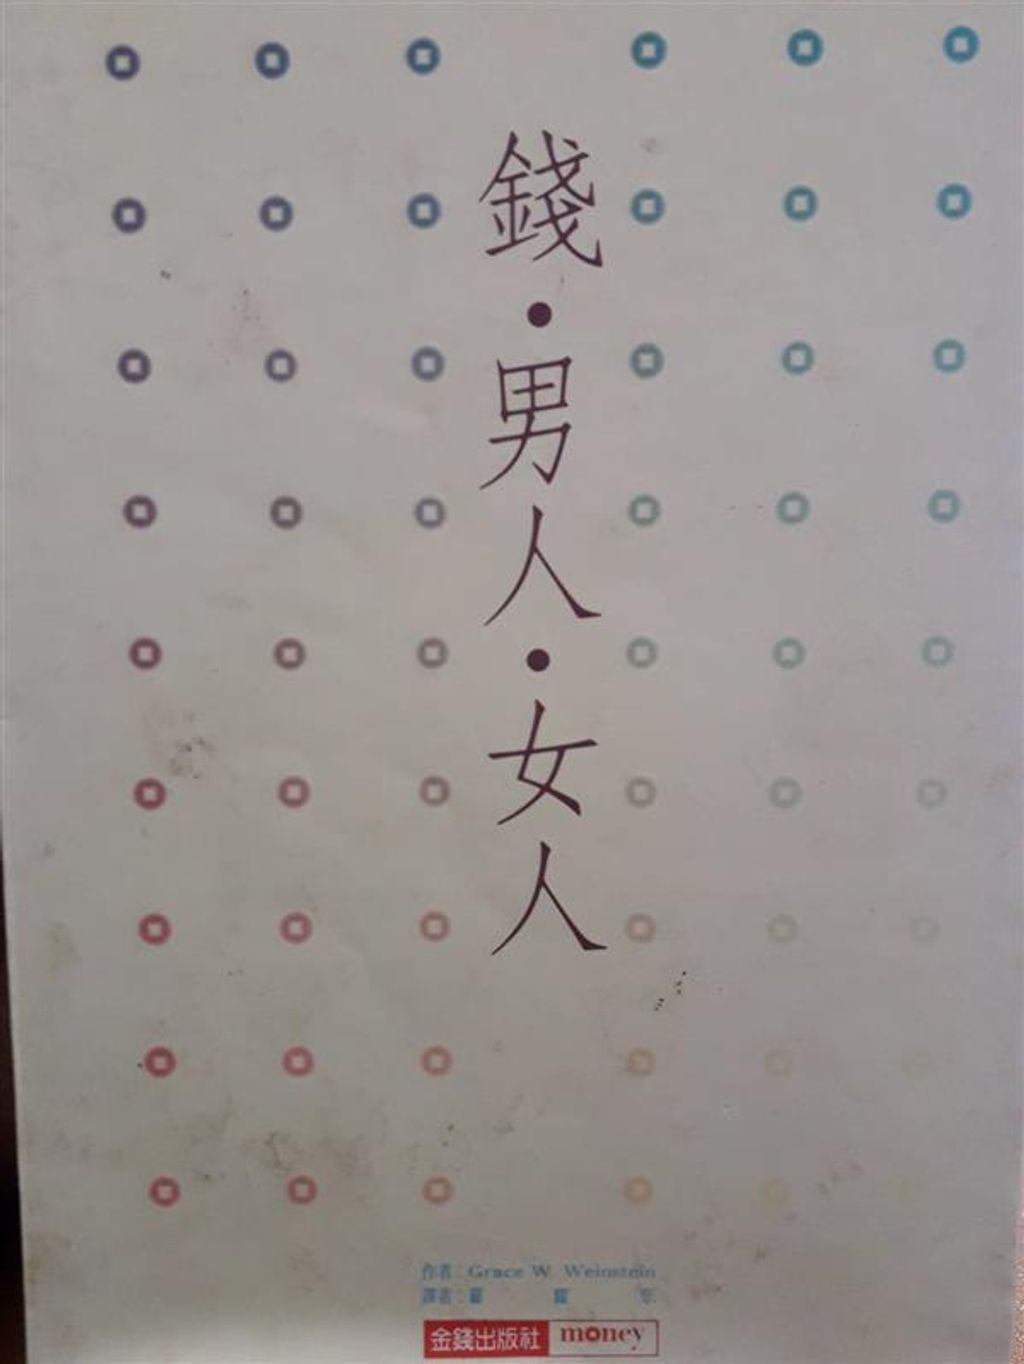 錢・男人・女人
作者：Grace W. Weinstein
譯者：
金錢出版社 money